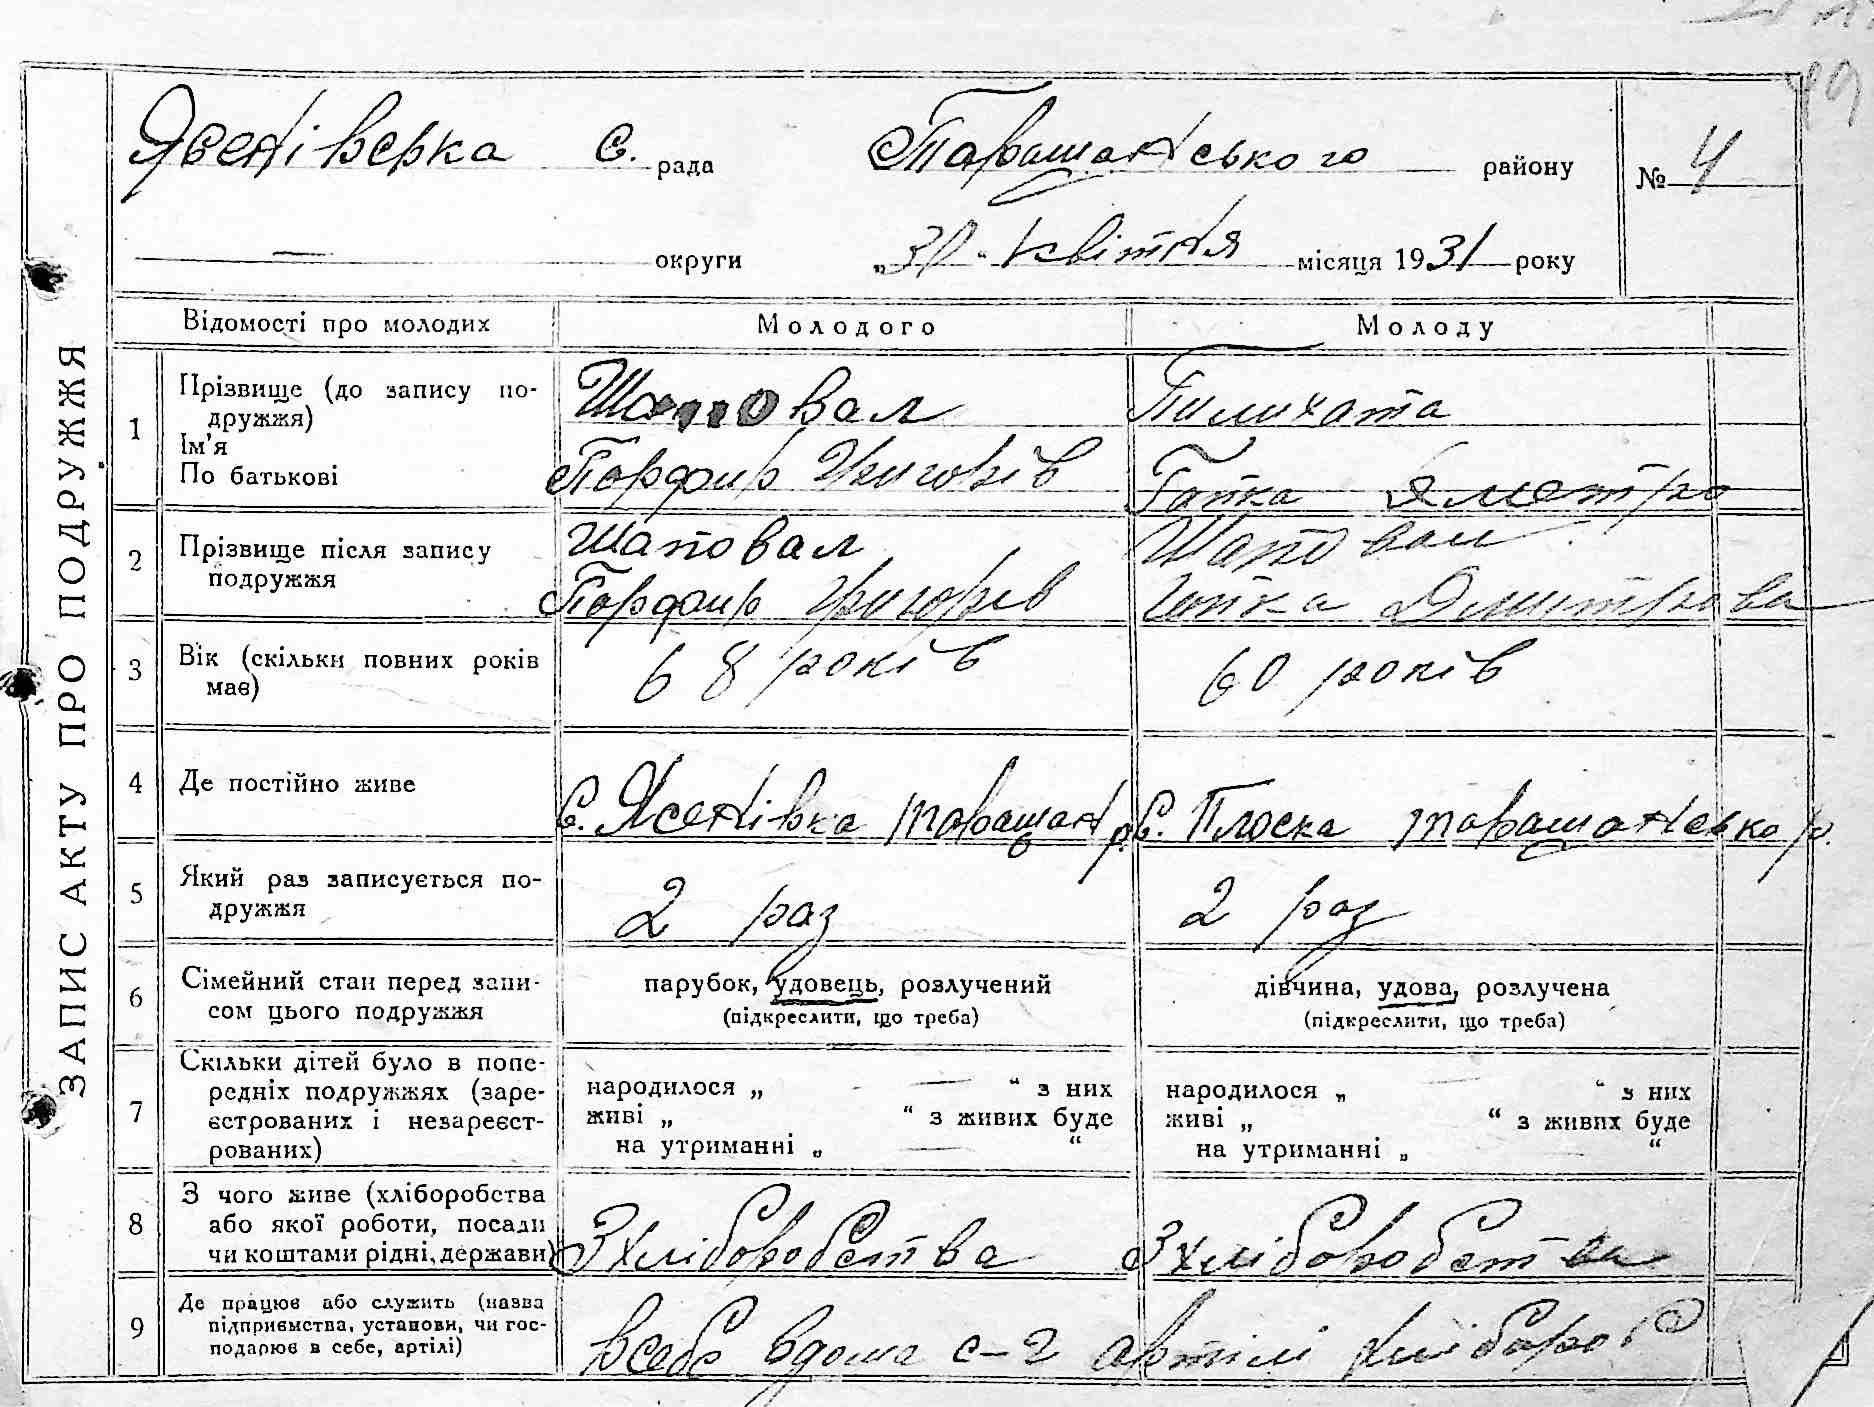 49
Ясенівська с. рада Таращанського району № 4
— округи „30“ квітня місяця 1931 року
ЗАПИС АКТУ ПРО ПОДРУЖЖЯ
Відомості про молодих Молодого Молоду
1 Прізвище (до запису по-
дружжя)
Ім'я
По батькові
Шаповал
Порфир Григорів
Пилихата
Гапка Дметро
2 Прізвище після запису
подружжя
Шаповал
Порфир Григорів
Шаповал
Гапка Дмитрова
3 Вік (скільки повних років
має)
68 років
60 років
4 Де постійно живе
С. Ясенівка таращан р.
С. Плоска таращансько р.
5 Який раз записується по-
дружжя
2 раз
2 раз
6 Сімейний стан перед запи-
сом цього подружжя
парубок, удовець, розлучений
(підкреслити, що треба)
дівчина, удова, розлучена
(підкреслити, що треба)
7 Скільки дітей було в попе-
редніх подружжях (заре-
єстрованих і незареєст-
рованих)
народилося „ — “ з них
живі „ “ з живих буде
на утриманні „ — “
народилося „ — “ з них
живі „ “ з живих буде
на утриманні „ — “
8 З чого живе (хліборобства
або якої роботи, посади
чи коштами рідні, держави)
З хліборобства
З хліборобства
9 Де працює або служить (назва
підприємства, установи, чи гос-
подарює в себе, артілі)
в себе вдома с-г артілі хлібороб